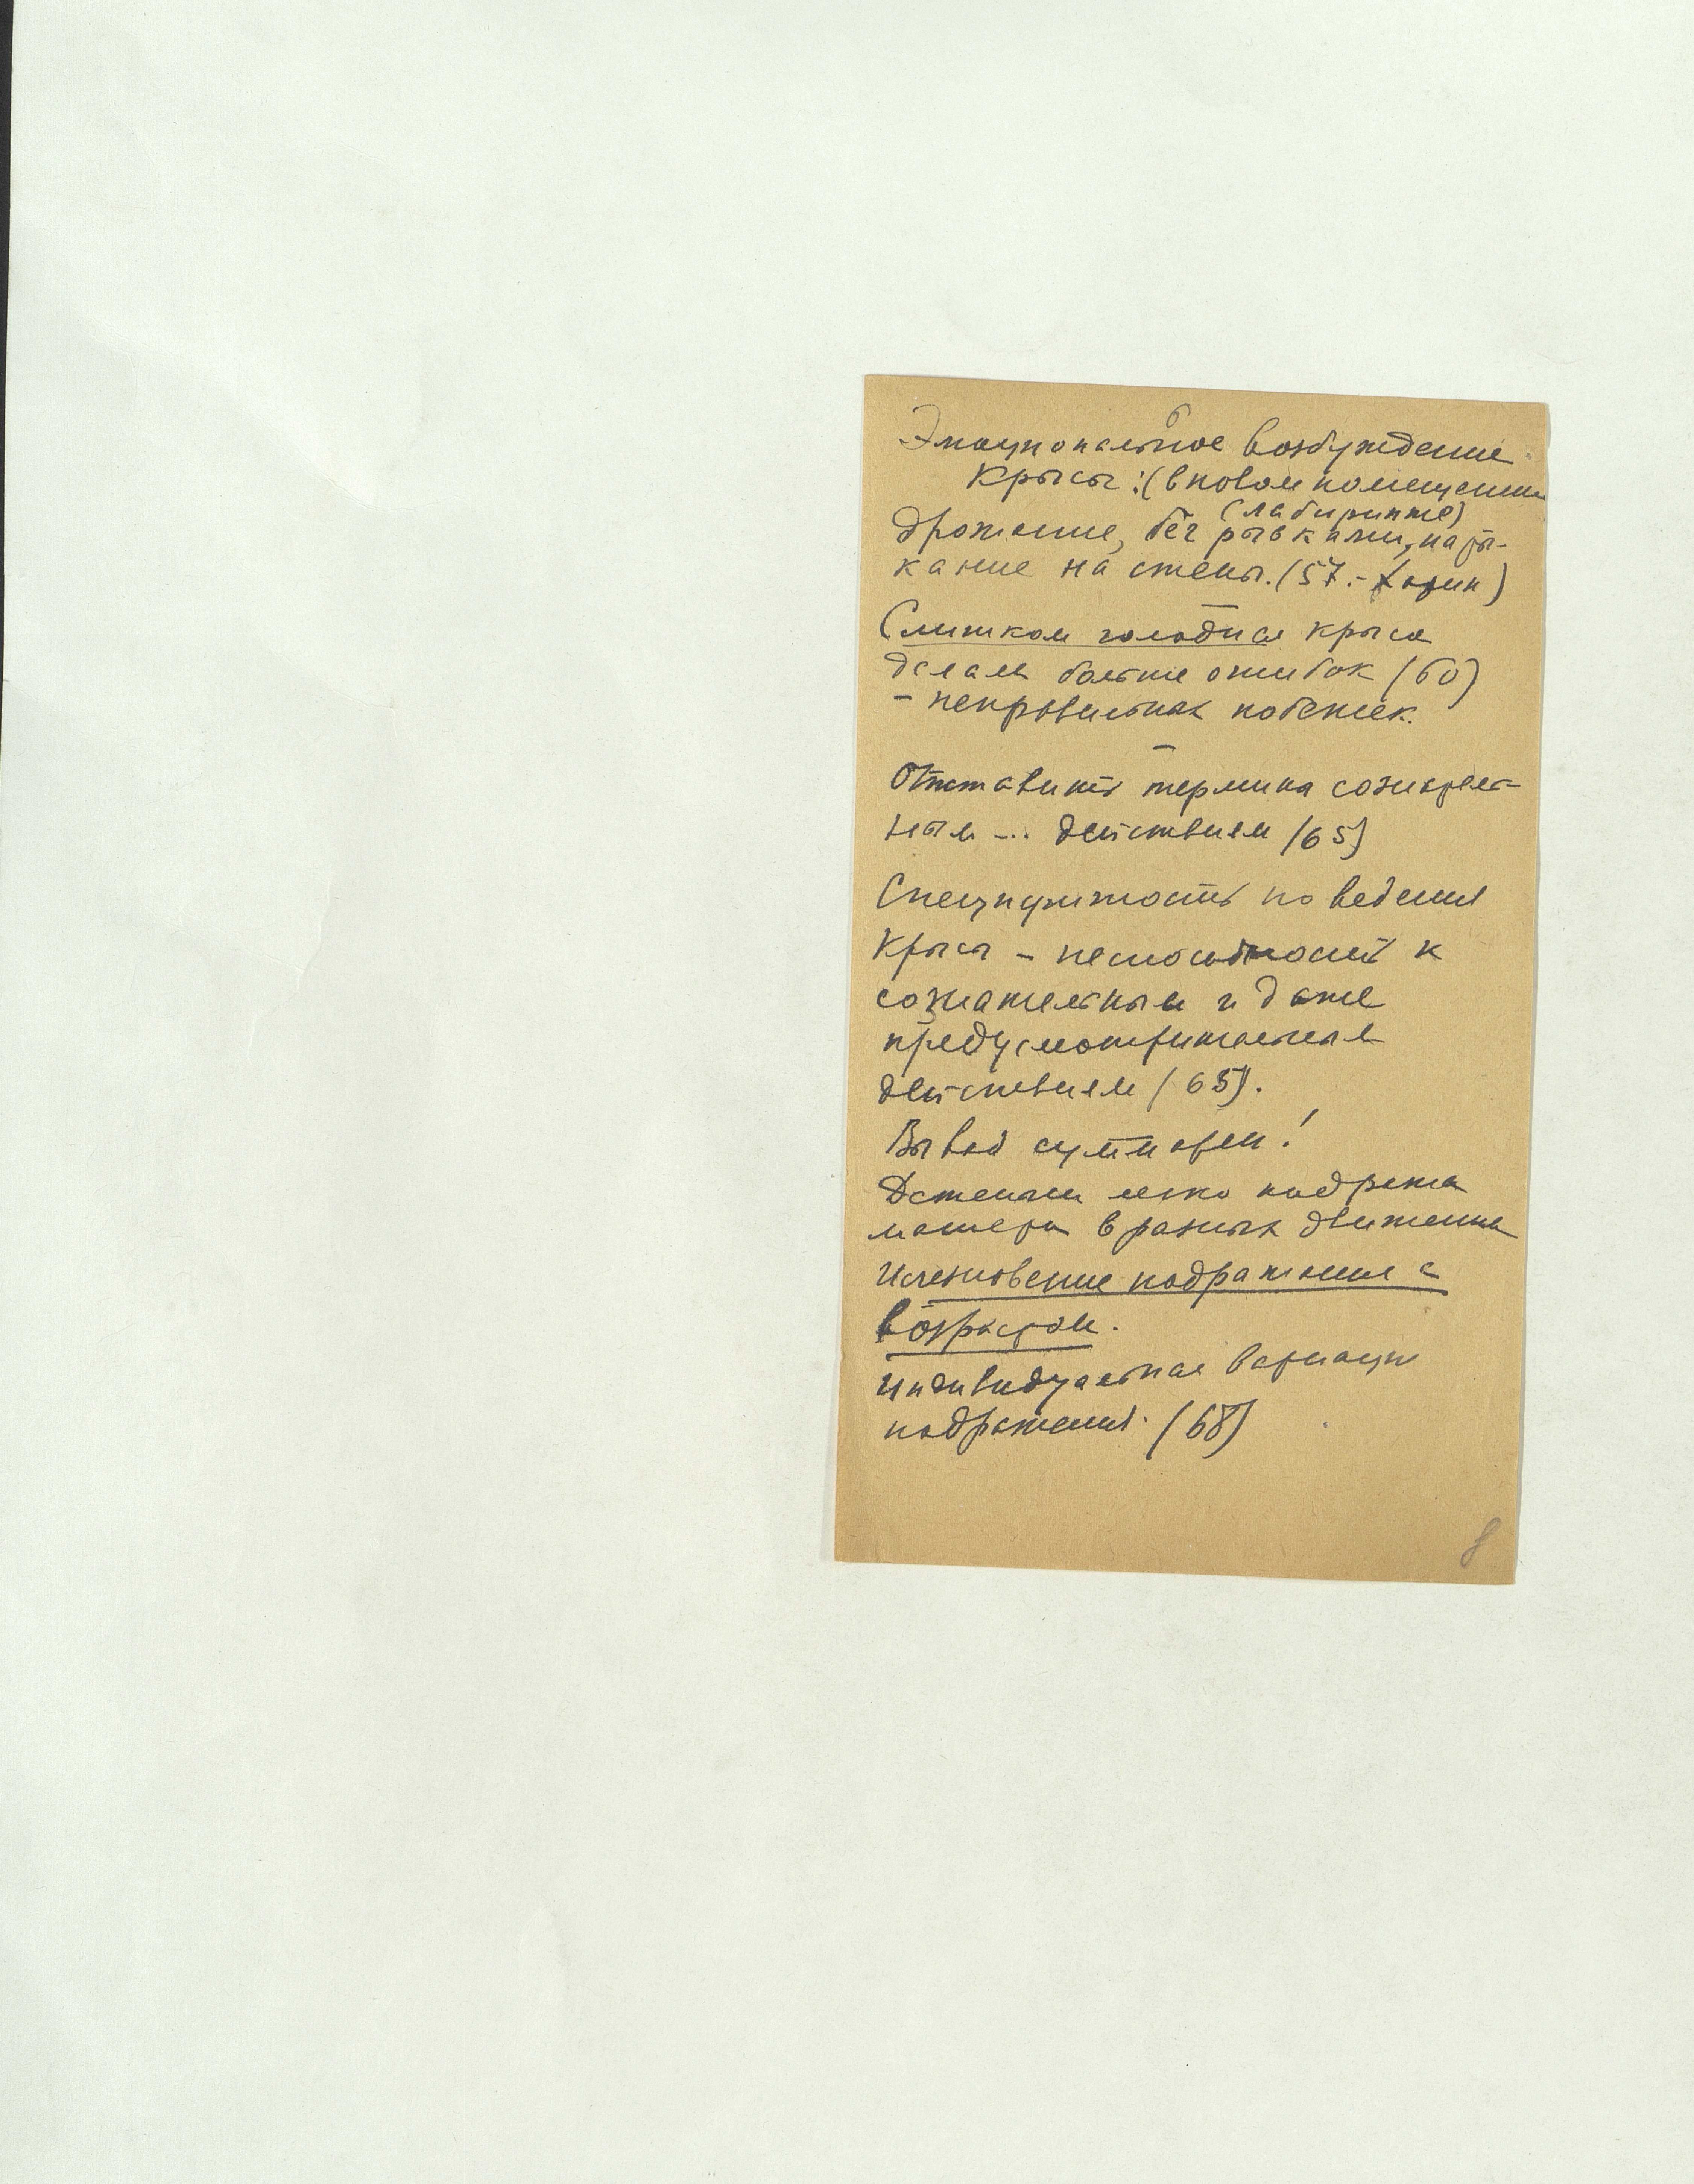 6
Эмоциональное возбуждение
крысы: (в новом помещении
(лабиринте)
дрожание, бег рывками, наты-
кание на стены. (57.-
Слишком голодная крыса
делает больше ошибок (60)
- неправильных побежек.
термина
ным ... действиям (65)
Специфитность поведения
крысы - неспособность к
сознательным и даже
предусмотрительным
действиям (65).
Вывод суммарен!
Детеныши легко подража
матери в разных движениях
Исчезновение подражания с
возрастом.
Индивидуальная вариация
подражания. (68)
8